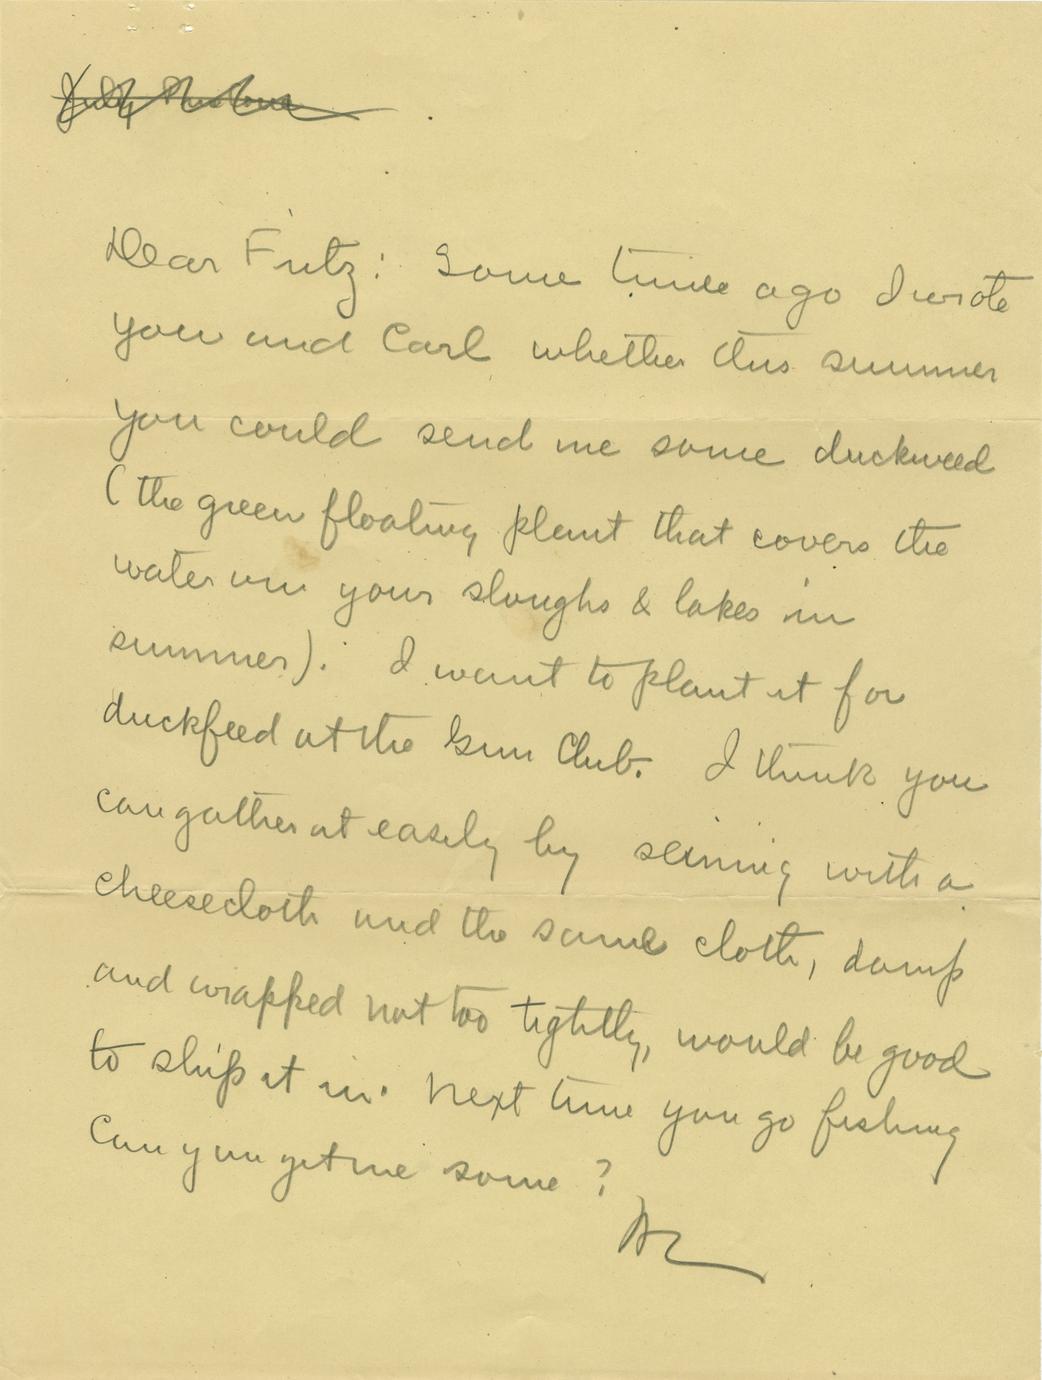 Dear Fritz: Some time ago I wrote
you and Carl whether this summer
you could send me some duckweed
(the green floating plant that covers the
water on your sloughs & lakes in
summer). I want to plant it for
duckfeed at the Gun Club. I think you
can gather it easily by seining with a
cheesecloth and the same cloth, damp
and wrapped not too tightly, would be good
to ship it in. Next time you go fishing
can you get me some?